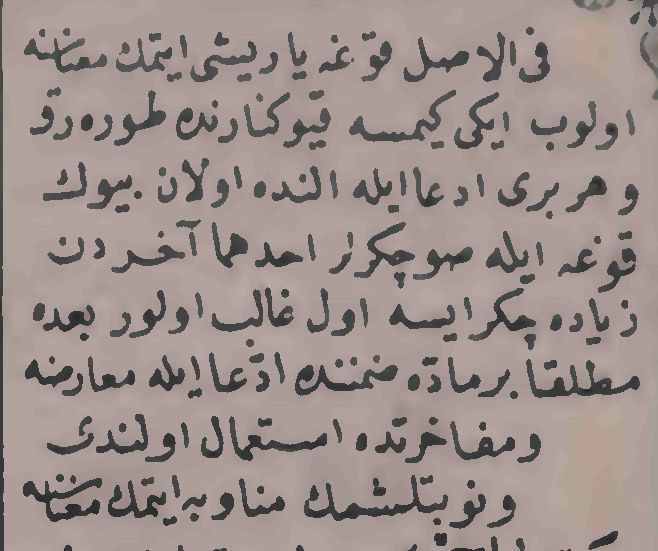 فى الاصل قوغه ياريشى ايتمك معناسنه
اولوب ايكى كيمسه قيو كنارنده طوره رق
و هر برى ادعا ايله النده اولان بيوك
قوغه ايله صو چكرلر احدهما آخردن
زياده چكر ايسه اول غالب اولور بعده
مطلقا بر ماده ضمننده ادّعا ايله معارضه
ومفاخرتده استعمال اولندى
و نوبتلشمك مناوبه ايتمك معناسنه